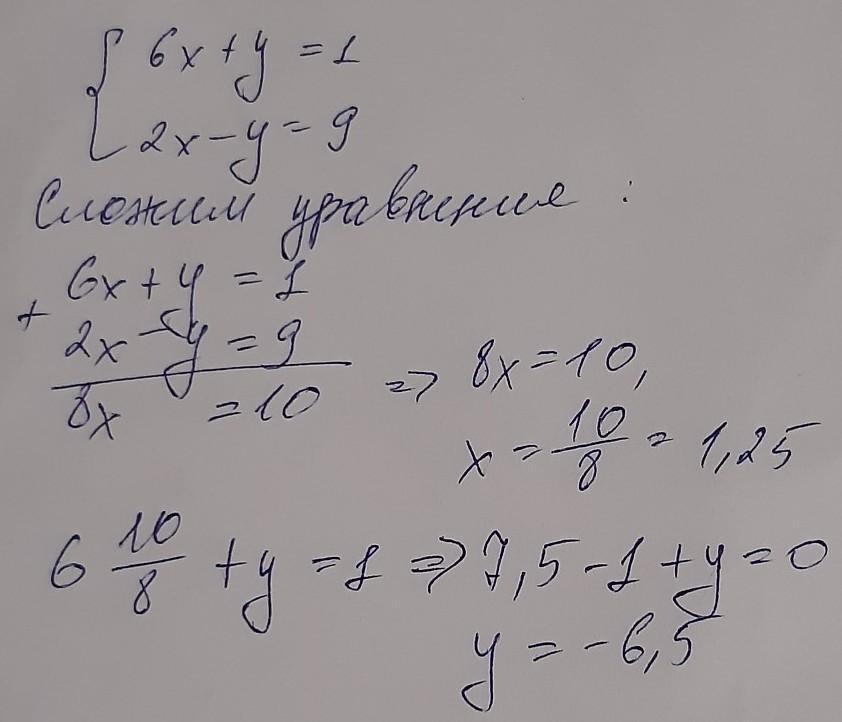 { 6x + y = 1
2x - y = 9
Сложим уравнения :
+ 6x + y = 1
2x - y = 9
8x = 10 => 8x = 10,
x = 10/8 = 1,25
6 10/8 + y = 1 => 7,5 - 1 + y = 0
y = -6,5